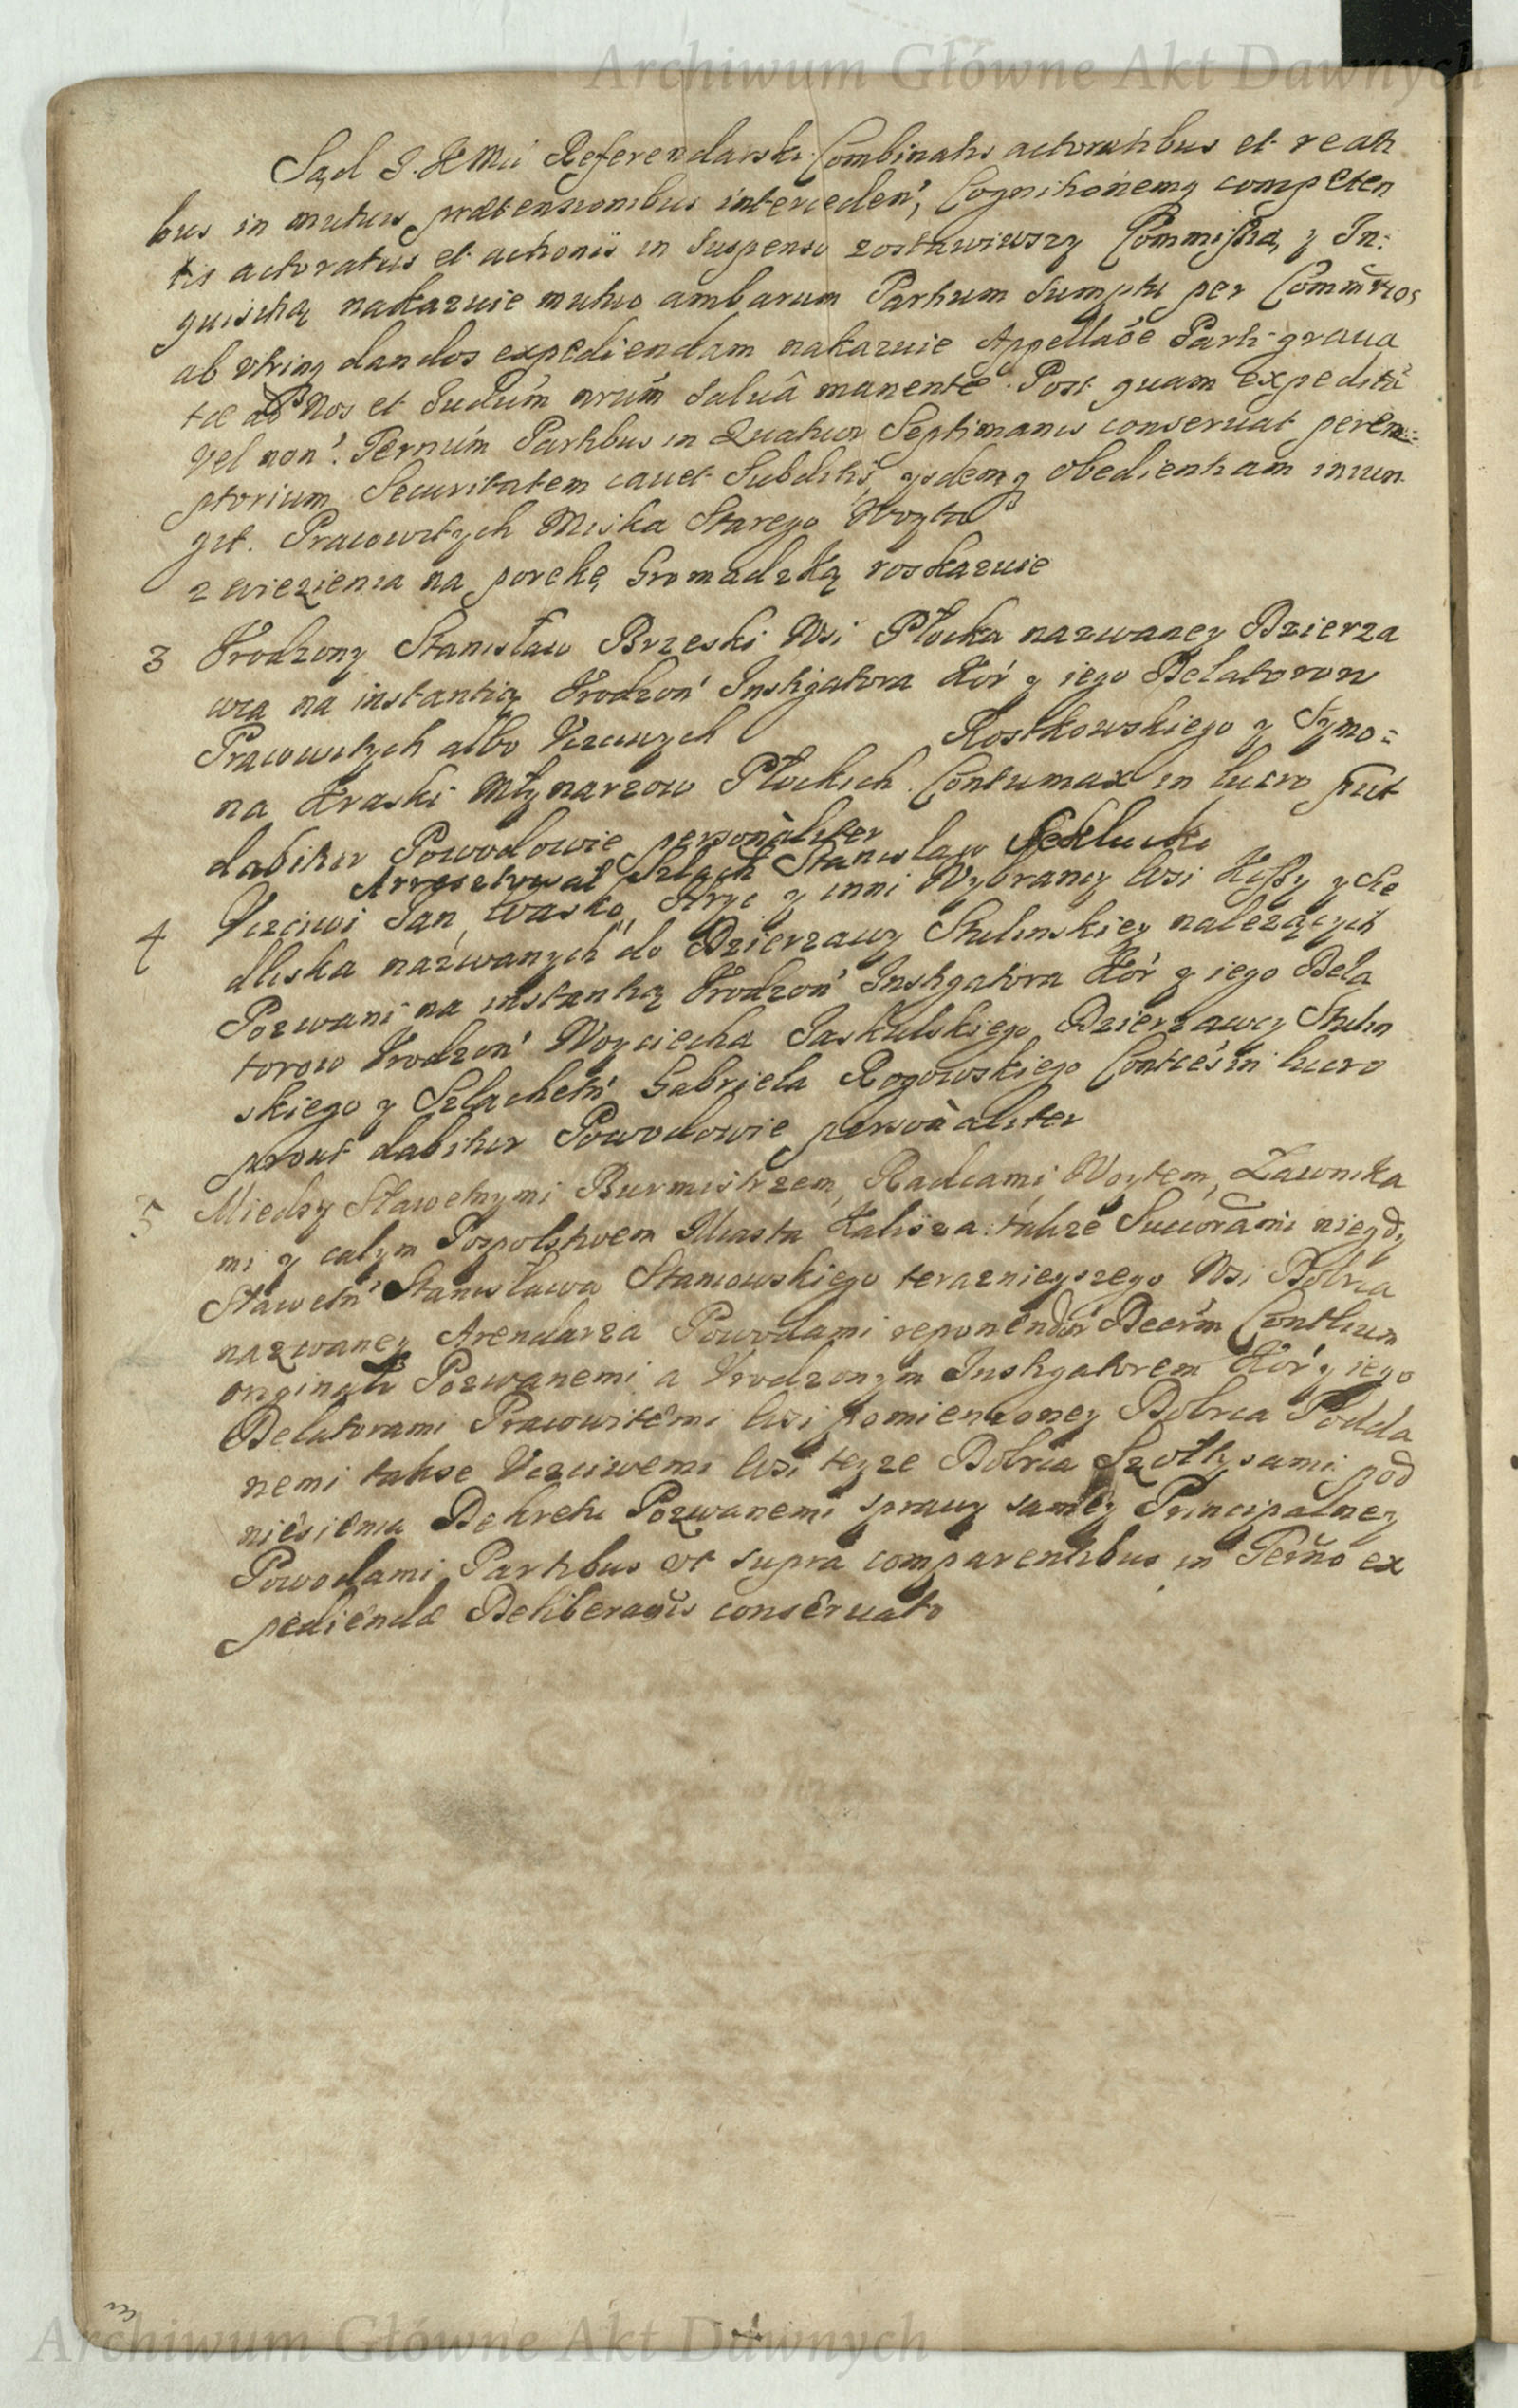 Archiwum Główne Akt Dawnych
Sąd J. K Mci Referendarski Combinatis actoratibus et reati
bus in mutuis prætensionibus interceden', Cognitionemq competen
tis actoratus et actionis in suspenso zostawiwszy Commissią y In:
quisitią nakazuie mutuo ambarum Partium sumptu per Commrios
ab utrinq dandos expediendam nakazuie Appellaõe Parti graua
tæ ad Nos et Judium nrum saluâ manente. Post quam expeditã
vel non'. Ternum Partibus in Quatuor Septimanis conseruat perem:
ptorium Securitatem cauet Subditis, ysdemq obedientiam iniun
git. Pracowitych Miska Starego Woyta
z więzienia na porękę Gromadzką roskazuie
3 Vrodzony Stanisław Brzeski Wsi Płocka nazwaney Dzierza
wca na instantią Vrodzon' Instigatora Kor' y iego Delatorow
Pracowitych albo Vczciwych Rostkowskiego y Szymo=
na Kraski Młynarzow Płockich. Contumax in lucro put
dabitur Powodowie personaliter
Arresztował Szlach Stanisław Sedlucki
4 Vczciwi Jan, Wasko, Hryc y inni Wybrancy Wsi Kossy y Sie
dliska nazwanych do Dzierzawy Stulinskiey nalezących
Pozwani na instantią Vrodzon' Instigatora Kor' y iego Dela
torow Vrodzon' Woyciecha Jaskulskiego Dzierzawcy Stulin
skiego y Szlachetn' Gabriela Rogowskiego Conties in lucro
prout dabitur Powodowie personaliter
5 Między Sławetnymi Burmistrzem, Radcami, Woytem, Ławnika
mi y całym Pospolstwem Miasta Kalisza: także Succorami niegdy
Sławetn' Stanisława Stamowskiego teraznieyszego Wsi Dobrca
nazwaney Arendarza Powodami reponendor' Decrm Contlium
originali Pozwanemi a Vrodzonym Instigatorem Kor' y iego
Delatorami Pracowitemi Wsi pomienioney Dobrca Podda
nemi takse Vczciwemi Wsi teyze Dobrca Szołtysami pod
niesienia Dekretu Pozwanemi sprawy samey Principalney
Powodami Partibus vt supra comparentibus in Termo ex
pediendæ Deliberaõis conseruato
Archiwum Główne Akt Dawnych